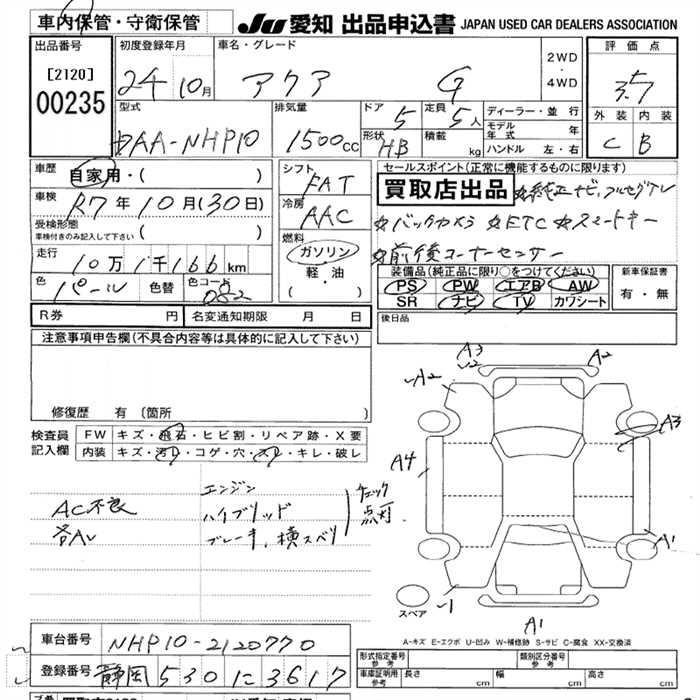 車内保管・守衛保管
JU 愛知 出品申込書 JAPAN USED CAR DEALERS ASSOCIATION
出品番号
[2120]
00235
初度登録年月
24 10月
車名・グレード
アクア G
2WD
・
4WD
評価点
3.5
外装 内装
C B
型式
DAA-NHP10
排気量
1500cc
ドア 5
定員 5人
形状 HB
積載 kg
ディーラー・並行
モデル年式 年
ハンドル 左・右
車歴
自家用・( )
車検
R7年10月(30日)
受検形態
車検付きのみ記入して下さい ( )
走行
10万1千166km
色 パール 色替 色コード 082
シフト
FAT
冷房
AAC
燃料
ガソリン
軽・油
・( )
セールスポイント(正常に機能するものに限ります)
買取店出品 ☆純正ナビ,フルセグTV
☆バックカメラ ☆ETC ☆スマートキー
☆前後コーナーセンサー
装備品(純正品に限り○をつけてください)
PS PW エアB AW
SR ナビ TV カワシート
新車保証書
有・無
R券 円 名変通知期限 月 日
後日品
注意事項申告欄(不具合内容等は具体的に記入して下さい)
修復歴 有 [箇所 ]
検査員記入欄
FW キズ・飛石・ヒビ割・リペア跡・X要
内装 キズ・汚れ・コゲ・穴・スレ・キレ・破レ
AC不良
各AU
エンジン
ハイブリッド
ブレーキ,横スベリ
チェック点灯
A3
✓2
A2
✓A2
A3
A4
A1
✓1
A1
スペア
A-キズ E-エクボ U-凹み W-補修跡 S-サビ C-腐食 XX-交換済
車台番号 NHP10-2120770
登録番号 静岡530に3617
形式指定番号 参考
類別区分番号 参考
車庫証明用 参考 長さ cm 幅 cm 高さ cm